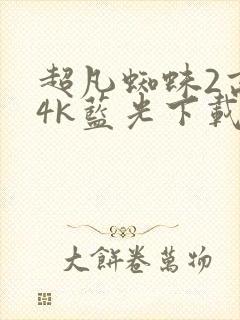 超凡蜘蛛2高
4K藍光下載
大餅卷萬物